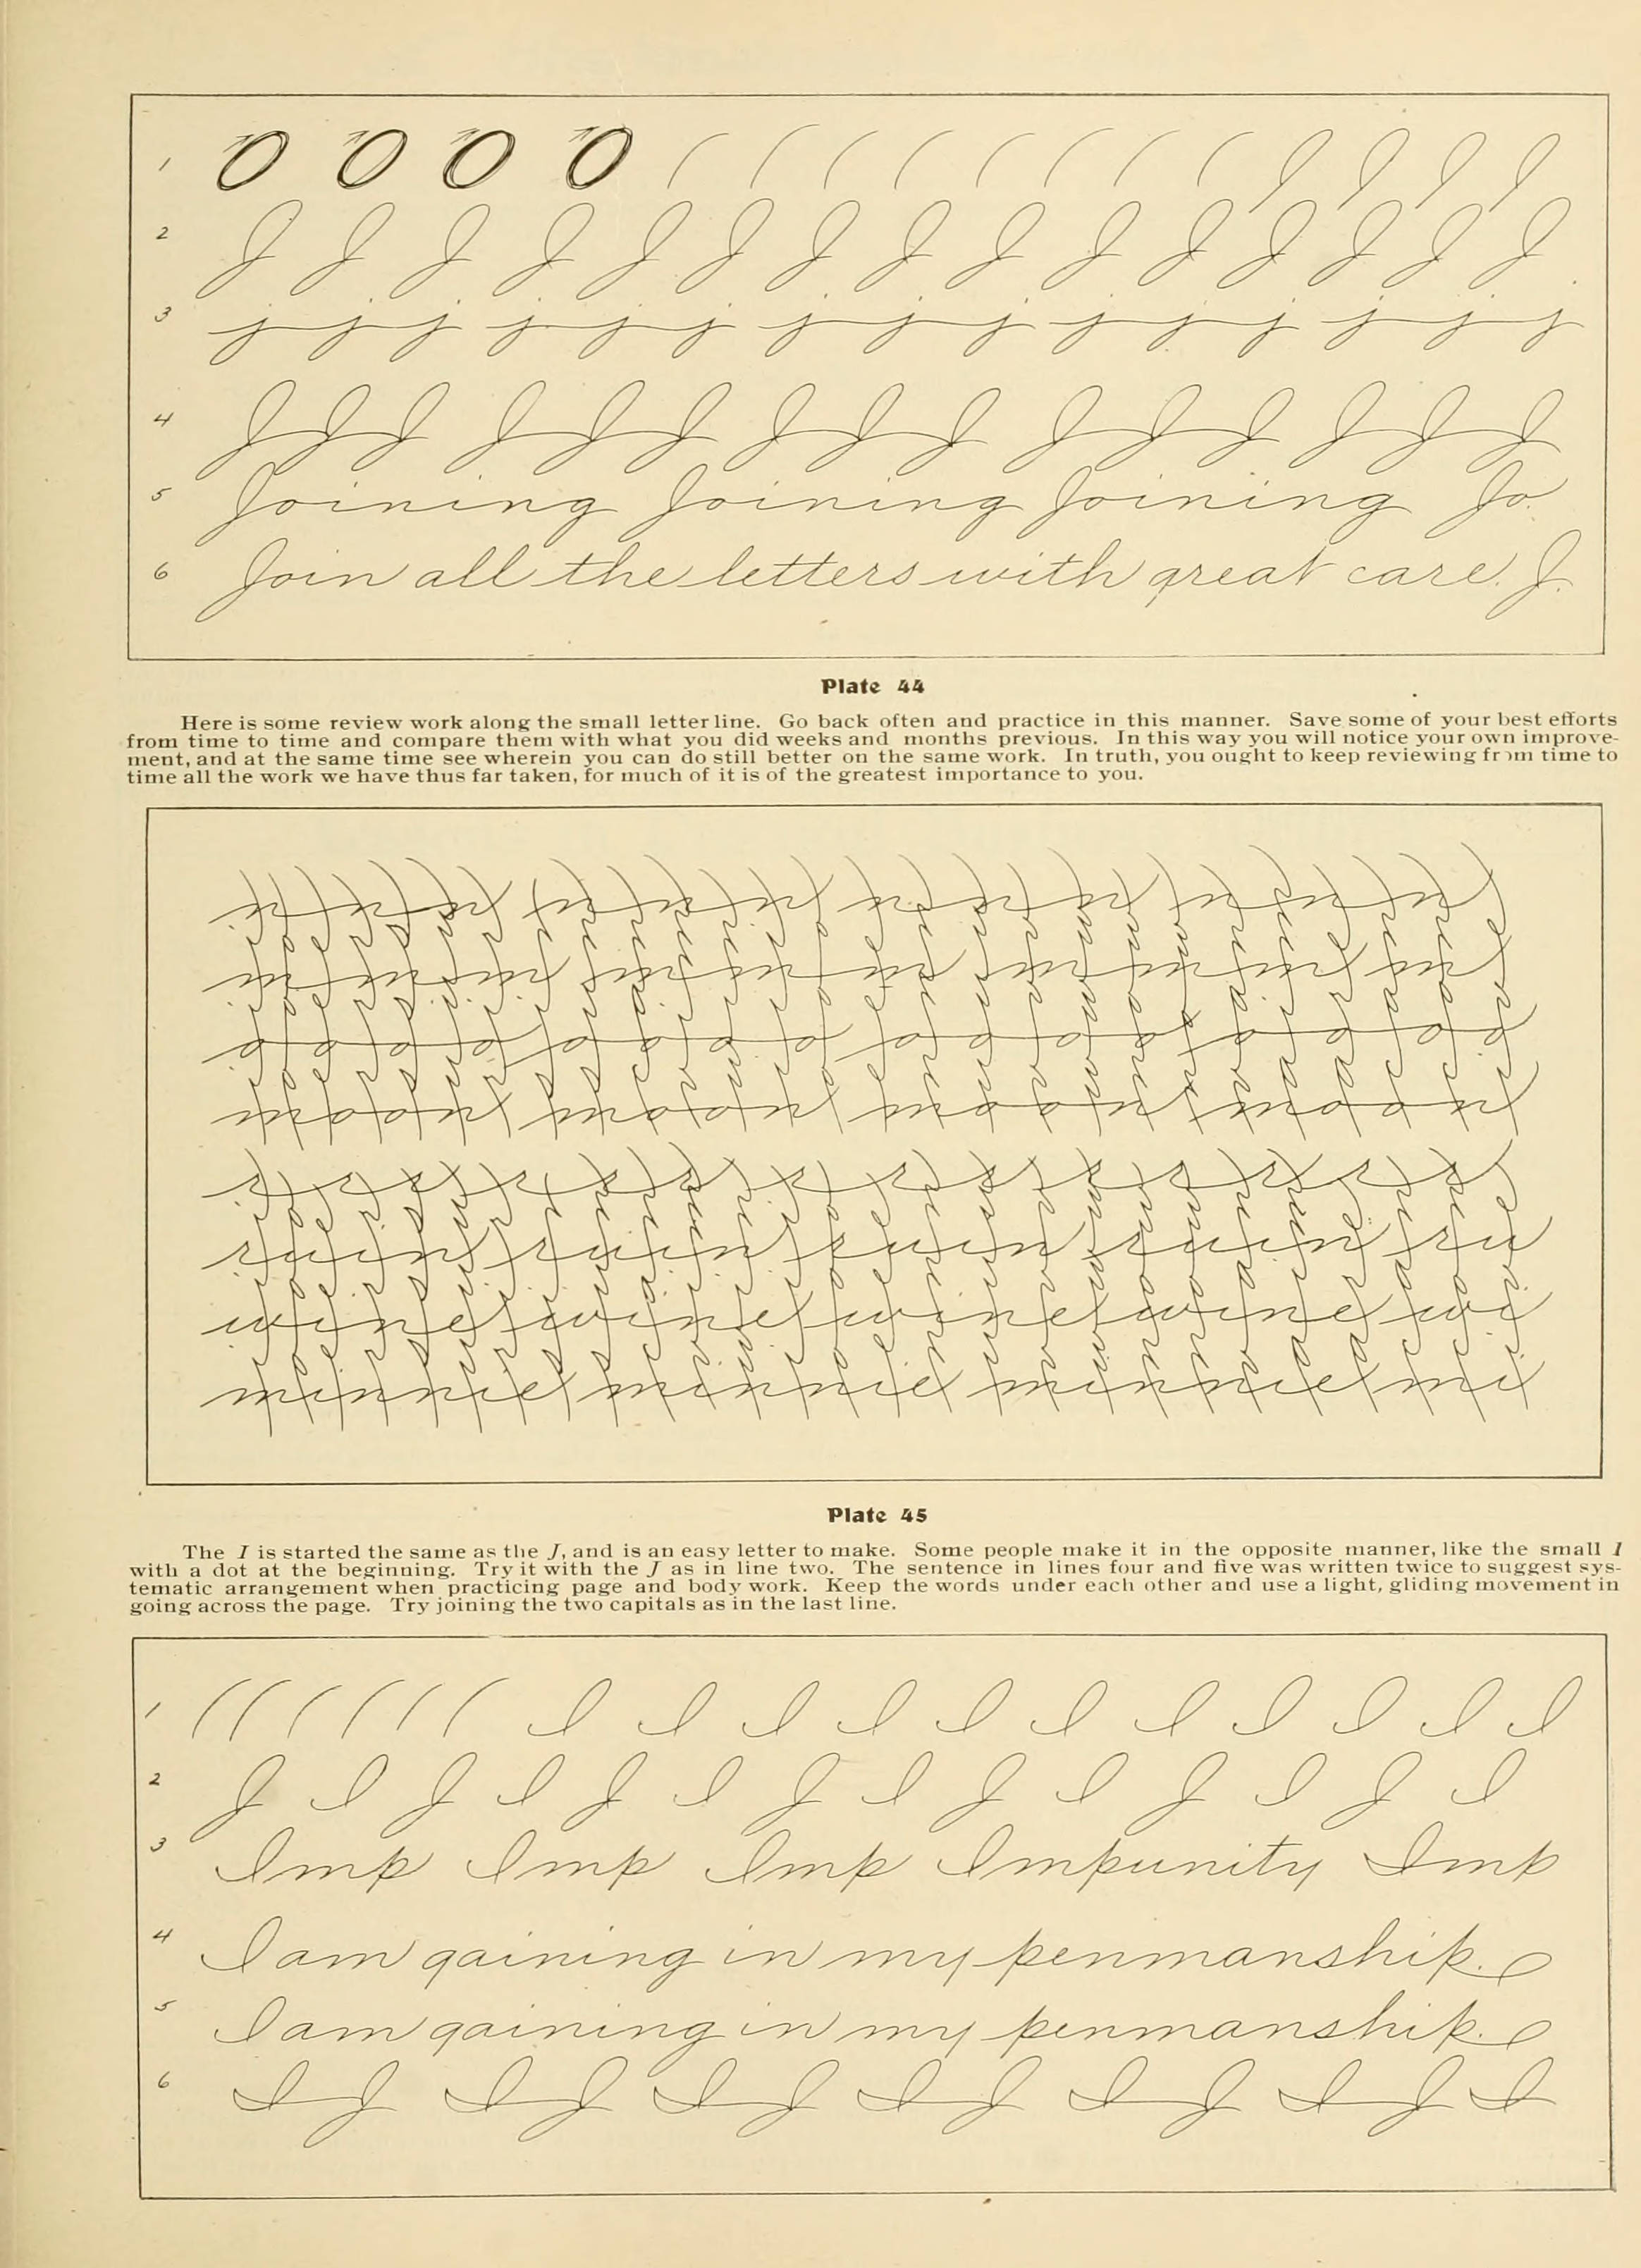 1 O O O O J J J J
2 J J J J J J J J J J J J J J J
3 j j j j j j j j j j j j j j j
4 JJJ JJJ JJJ JJJ JJJ
5 Joining Joining Joining Jo.
6 Join all the letters with great care. J.
Plate 44
Here is some review work along the small letter line. Go back often and practice in this manner. Save some of your best efforts
from time to time and compare them with what you did weeks and months previous. In this way you will notice your own improve-
ment, and at the same time see wherein you can do still better on the same work. In truth, you ought to keep reviewing from time to
time all the work we have thus far taken, for much of it is of the greatest importance to you.
moon moon moon moon
ruin ruin ruin ruin ru
wine wine wine wine wi
minnie minnie minnie mi
Plate 45
The I is started the same as the J, and is an easy letter to make. Some people make it in the opposite manner, like the small l
with a dot at the beginning. Try it with the J as in line two. The sentence in lines four and five was written twice to suggest sys-
tematic arrangement when practicing page and body work. Keep the words under each other and use a light, gliding movement in
going across the page. Try joining the two capitals as in the last line.
1 I I I I I I I I I I I
2 J I J I J I J I J I J I J I
3 Imp Imp Imp Impunity Imp
4 I am gaining in my penmanship.
5 I am gaining in my penmanship.
6 IJ IJ IJ IJ IJ IJ I